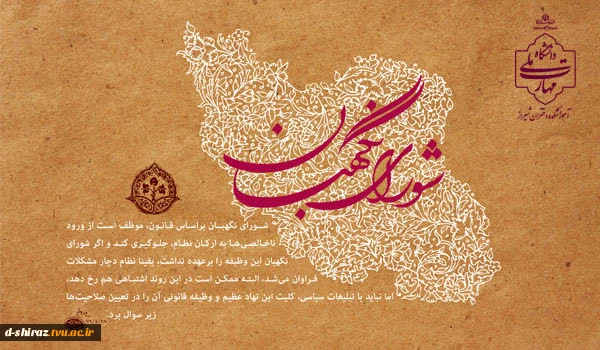 دانشگاه ملی مهارت
آموزشکده دختران شیراز
شورای نگهبان
شورای نگهبان براساس قانون، موظف است از ورود
ناخالصی‌ها به ارکان نظام، جلوگیری کند و اگر شورای
نگهبان این وظیفه را برعهده نداشت، یقینا نظام دچار مشکلات
فراوان می‌شد، البته ممکن است در این روند اشتباهی هم رخ دهد،
اما نباید با تبلیغات سیاسی، کلیت این نهاد عظیم و وظیفه قانونی آن را در تعیین صلاحیت‌ها
زیر سوال برد.
d-shiraz.tvu.ac.ir